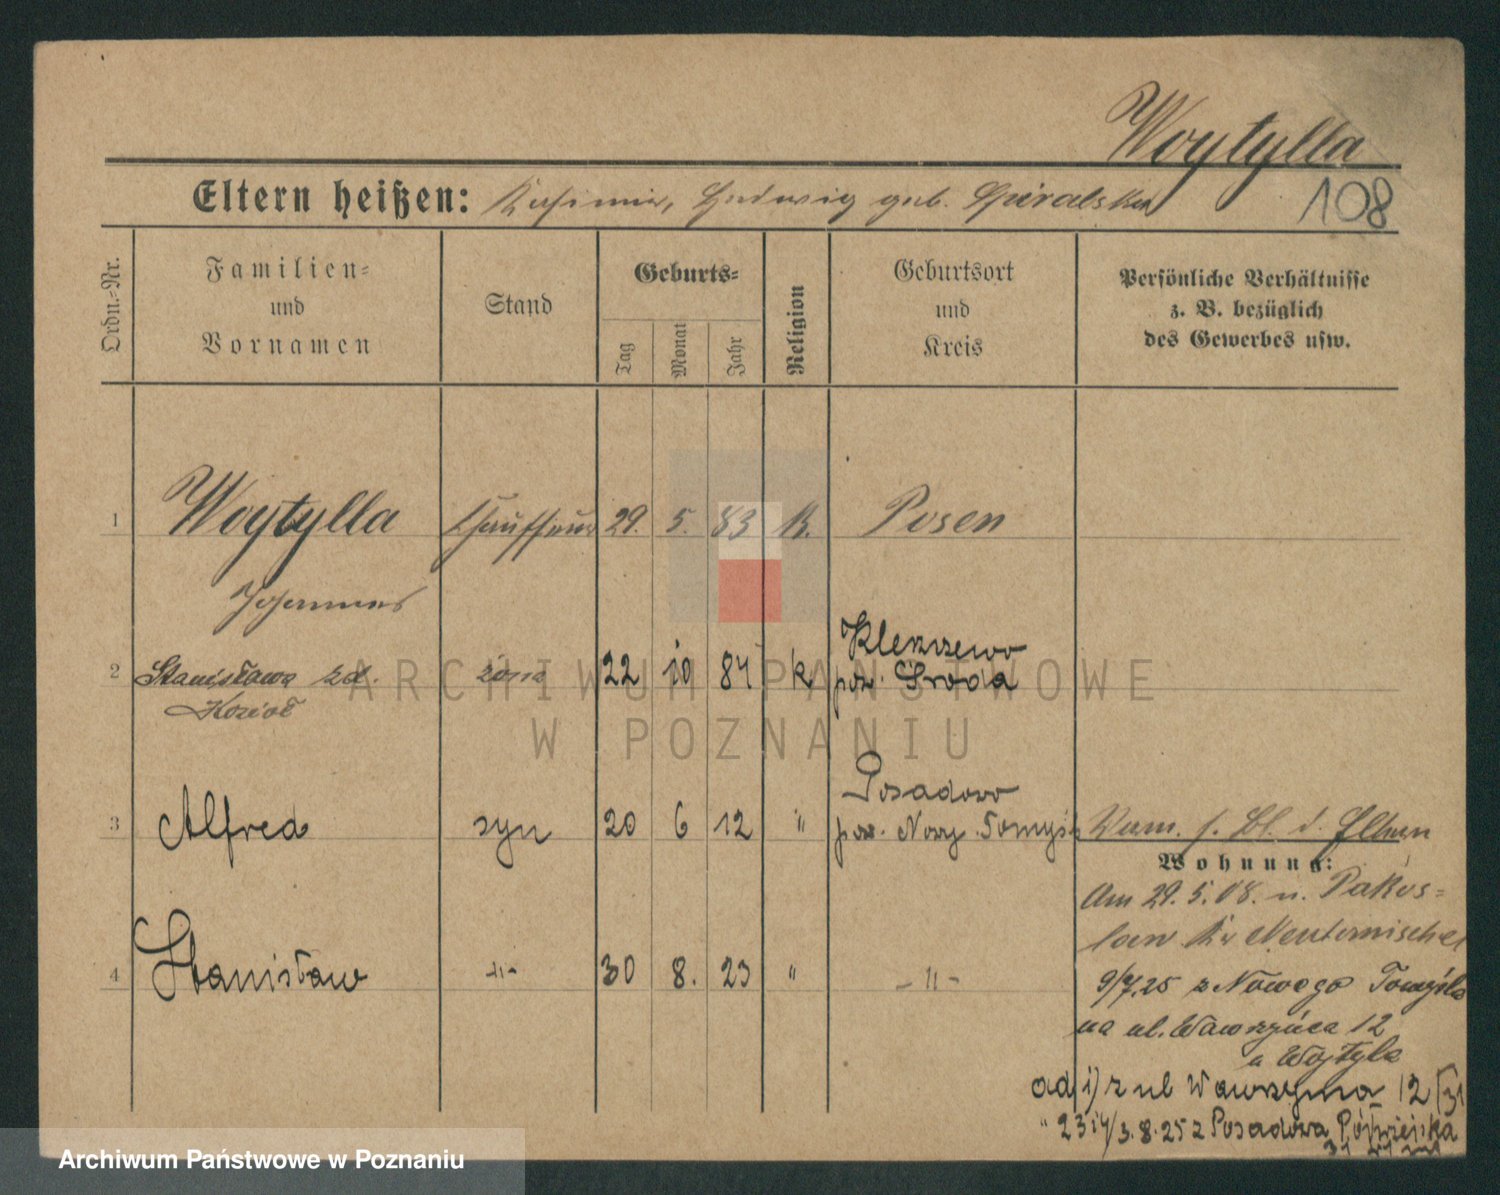 Woytylla
Eltern heißen: Kasimir, Hedwig geb.
108
Ordn.-Nr.
Familien-
und
Vornamen
Stand
Geburts-
Tag
Monat
Jahr
Religion
Geburtsort
und
Kreis
Persönliche Verhältnisse
z. B. bezüglich
des Gewerbes usw.
1 Woytylla Chauffeur 29. 5. 83 K. Posen
Johannes
Kleszczewo
2 Stanisława zd. żona 22 10 84 k pow. Środa
Kozioł
Posadowo
3 Alfred syn 20 6 12 " pow. Nowy Tomyśl
Verm. f. Bl. d. Eltern
Wohnung:
Am 29. 5. 08. n. Pakos-
law Kr Neutomischel
4 Stanisław -"- 30 8. 23 " -"-
9/7.25 z Nowego Tomyśla
na ul. Wawrzyńca 12
u Wojtyla
ad 1) z ul Wawrzyńca 12
" 2 3 i 4/3.8.25 z Posadowa Półwiejska
31
ARCHIWUM PAŃSTWOWE
W POZNANIU
Archiwum Państwowe w Poznaniu